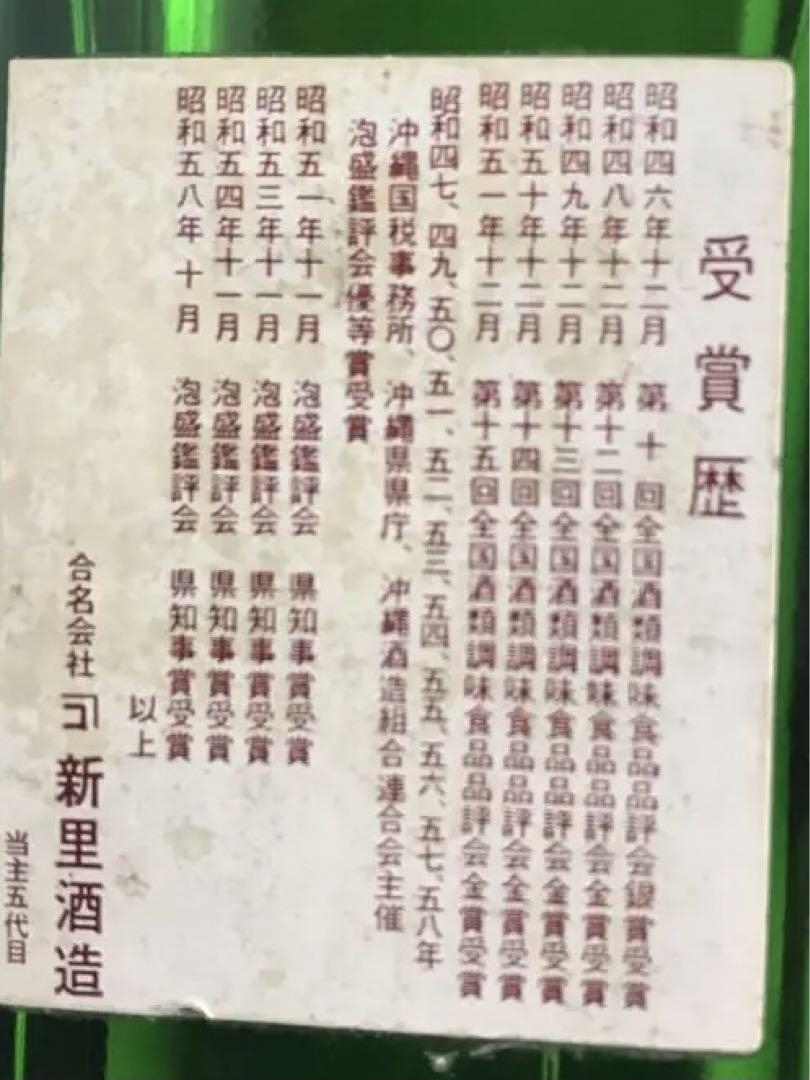 受賞歴
昭和四六年十二月 第十回全国酒類調味食品品評会銀賞受賞
昭和四八年十二月 第十二回全国酒類調味食品品評会金賞受賞
昭和四九年十二月 第十三回全国酒類調味食品品評会金賞受賞
昭和五十年十二月 第十四回全国酒類調味食品品評会金賞受賞
昭和五一年十二月 第十五回全国酒類調味食品品評会金賞受賞
昭和四七、四九、五〇、五一、五二、五三、五四、五五、五六、五七、五八年
沖縄国税事務所、沖縄県県庁、沖縄酒造組合連合会主催
泡盛鑑評会優等賞受賞
昭和五一年十一月 泡盛鑑評会 県知事賞受賞
昭和五三年十一月 泡盛鑑評会 県知事賞受賞
昭和五四年十一月 泡盛鑑評会 県知事賞受賞
昭和五八年十月 泡盛鑑評会 県知事賞受賞
以上
合名会社 新里酒造
当主五代目